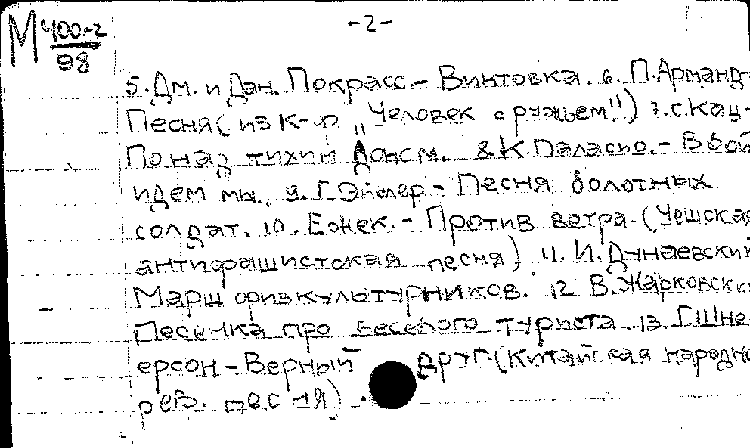 М 400-2
98
-2-
5. Дм. и Дан. Покрасс - Винтовка. 6. П. Арманд-
Песня (из к-ф "Человек с ружьем") 7. С. Кац -
По над тихим Доном. 8. К. Паласио. - В бой
идем мы. 9. Г. Эйслер - Песня болотных
солдат. 10. Ежек. - Против ветра. (Чешская
антифашистская песня) 11. И. Дунаевский
Марш физкультурников. 12 В. Жарковский
Песенка про веселого туриста. 13. Г. Шне-
ерсон - Верный друг (Китайская народно
рев. песня).